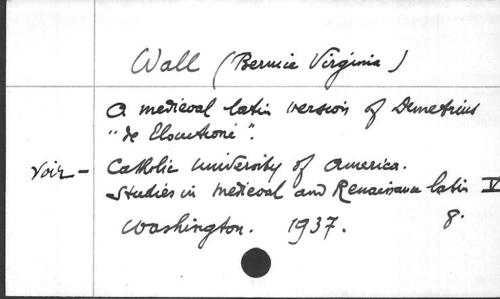 Wall (Bernice Virginia)
A medieval latin version of Demetrius
"de Elocutione".
Voir - Catholic University of America.
Studies in medieval and Renaissance latin V
Washington. 1937. 8.